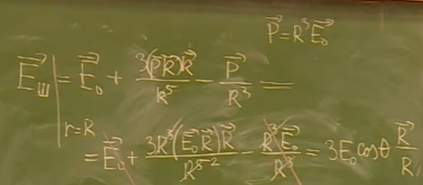 P⃗=R³E⃗₀
E⃗_Ш|_{r=R} = E⃗₀ + 3(P⃗R⃗)R⃗/R⁵ − P⃗/R³ =
= E⃗₀ + 3R³(E⃗₀R⃗)R⃗/R⁵ ² − R³E⃗₀/R³ = 3E₀cosθ R⃗/R